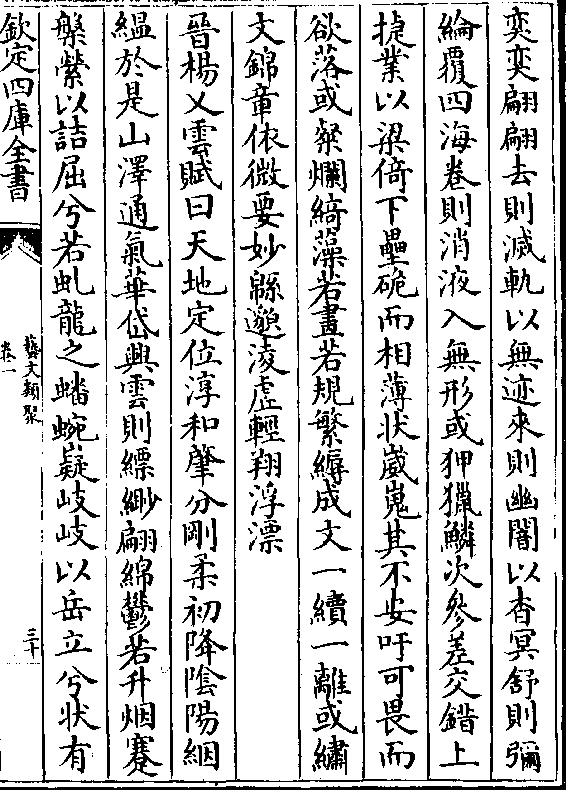 奕奕翩翩去則滅軌以無迹來則幽闇以杳冥舒則彌
綸覆四海卷則消液入無形或狎獵鱗次參差交錯上
揵業以梁倚下壘硊而相薄狀崴嵬其不安吁可畏而
欲落或粲爛綺藻若畫若規繁縟成文一續一離或繡
文錦章依微要妙緜邈淩虛輕翔浮漂
晉楊乂雲賦曰天地定位淳和肇分剛柔初降陰陽絪
緼於是山澤通氣華岱興雲則縹緲翩綿鬱若升烟蹇
槃縈以詰屈兮若虬龍之蟠蜿嶷岐岐以岳立兮狀有
欽定四庫全書
藝文類聚
卷一
三十